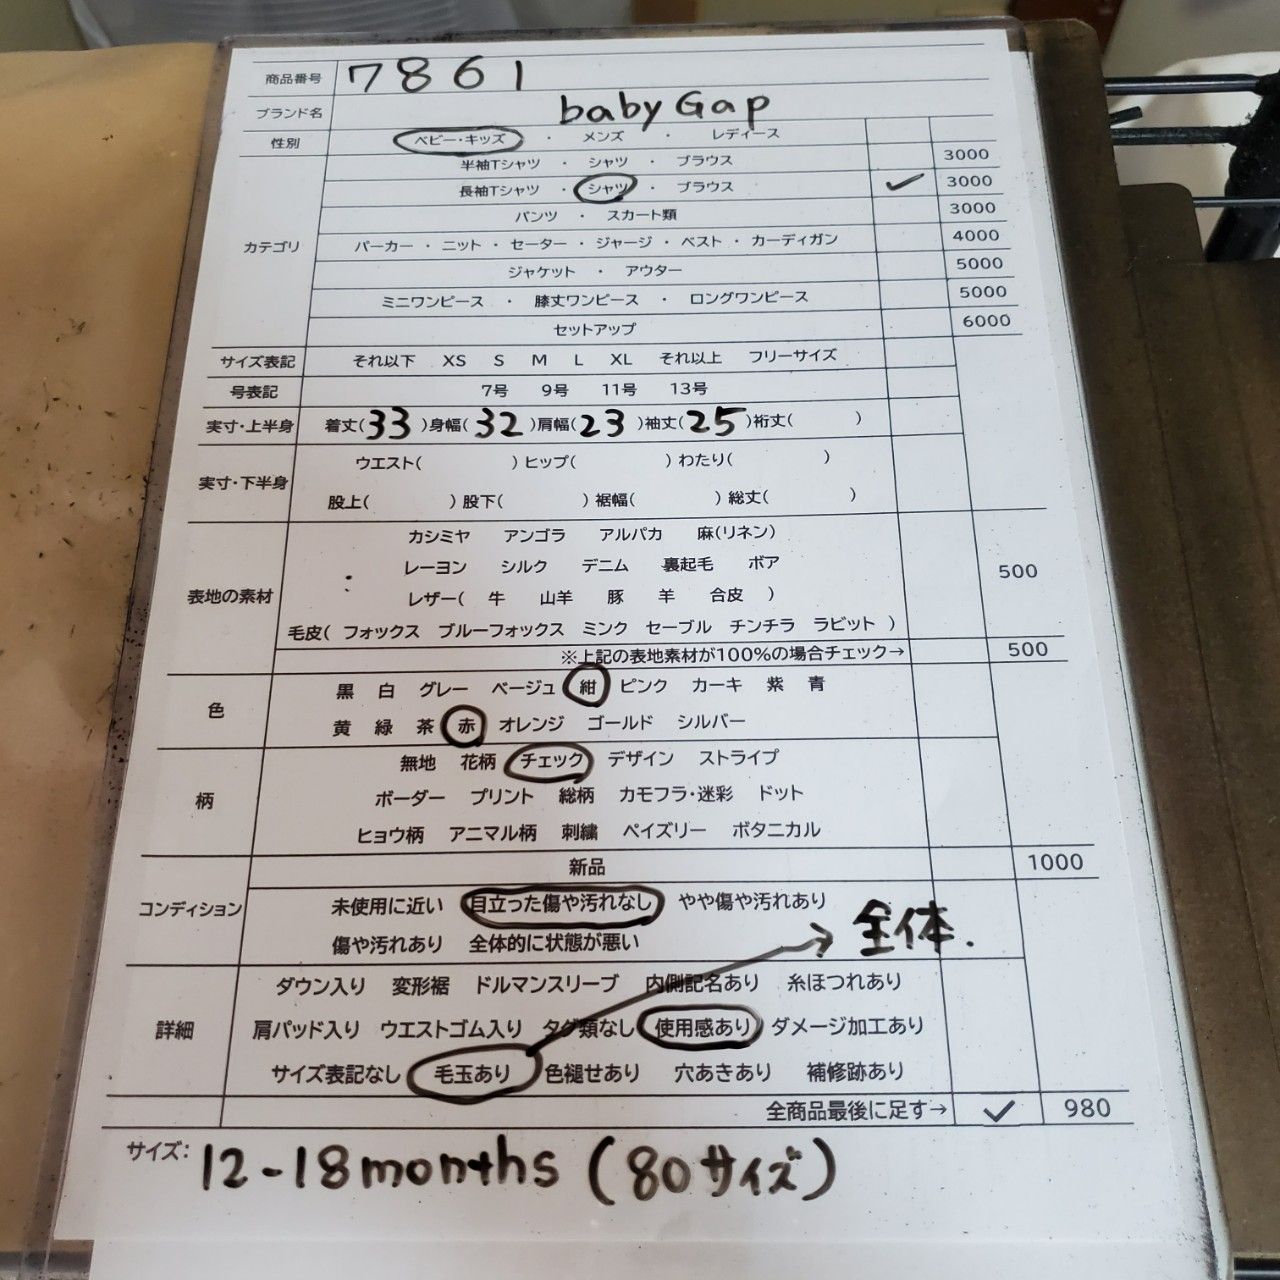 商品番号 7861
ブランド名 baby Gap
性別 ベビー・キッズ ・ メンズ ・ レディース
半袖Tシャツ ・ シャツ ・ ブラウス 3000
長袖Tシャツ ・ シャツ ・ ブラウス ✓ 3000
パンツ ・ スカート類 3000
カテゴリ パーカー ・ ニット ・ セーター ・ ジャージ ・ ベスト ・ カーディガン 4000
ジャケット ・ アウター 5000
ミニワンピース ・ 膝丈ワンピース ・ ロングワンピース 5000
セットアップ 6000
サイズ表記 それ以下 XS S M L XL それ以上 フリーサイズ
号表記 7号 9号 11号 13号
実寸・上半身 着丈(33)身幅(32)肩幅(23)袖丈(25)裄丈( )
実寸・下半身 ウエスト( )ヒップ( )わたり( )
股上( )股下( )裾幅( )総丈( )
表地の素材 カシミヤ アンゴラ アルパカ 麻(リネン)
レーヨン シルク デニム 裏起毛 ボア 500
レザー( 牛 山羊 豚 羊 合皮 )
毛皮( フォックス ブルーフォックス ミンク セーブル チンチラ ラビット )
※上記の表地素材が100%の場合チェック→ 500
色 黒 白 グレー ベージュ 紺 ピンク カーキ 紫 青
黄 緑 茶 赤 オレンジ ゴールド シルバー
柄 無地 花柄 チェック デザイン ストライプ
ボーダー プリント 総柄 カモフラ・迷彩 ドット
ヒョウ柄 アニマル柄 刺繍 ペイズリー ボタニカル
新品 1000
コンディション 未使用に近い 目立った傷や汚れなし やや傷や汚れあり
傷や汚れあり 全体的に状態が悪い → 全体.
詳細 ダウン入り 変形裾 ドルマンスリーブ 内側記名あり 糸ほつれあり
肩パッド入り ウエストゴム入り タグ類なし 使用感あり ダメージ加工あり
サイズ表記なし 毛玉あり 色褪せあり 穴あきあり 補修跡あり
全商品最後に足す→ ✓ 980
サイズ: 12-18months (80サイズ)